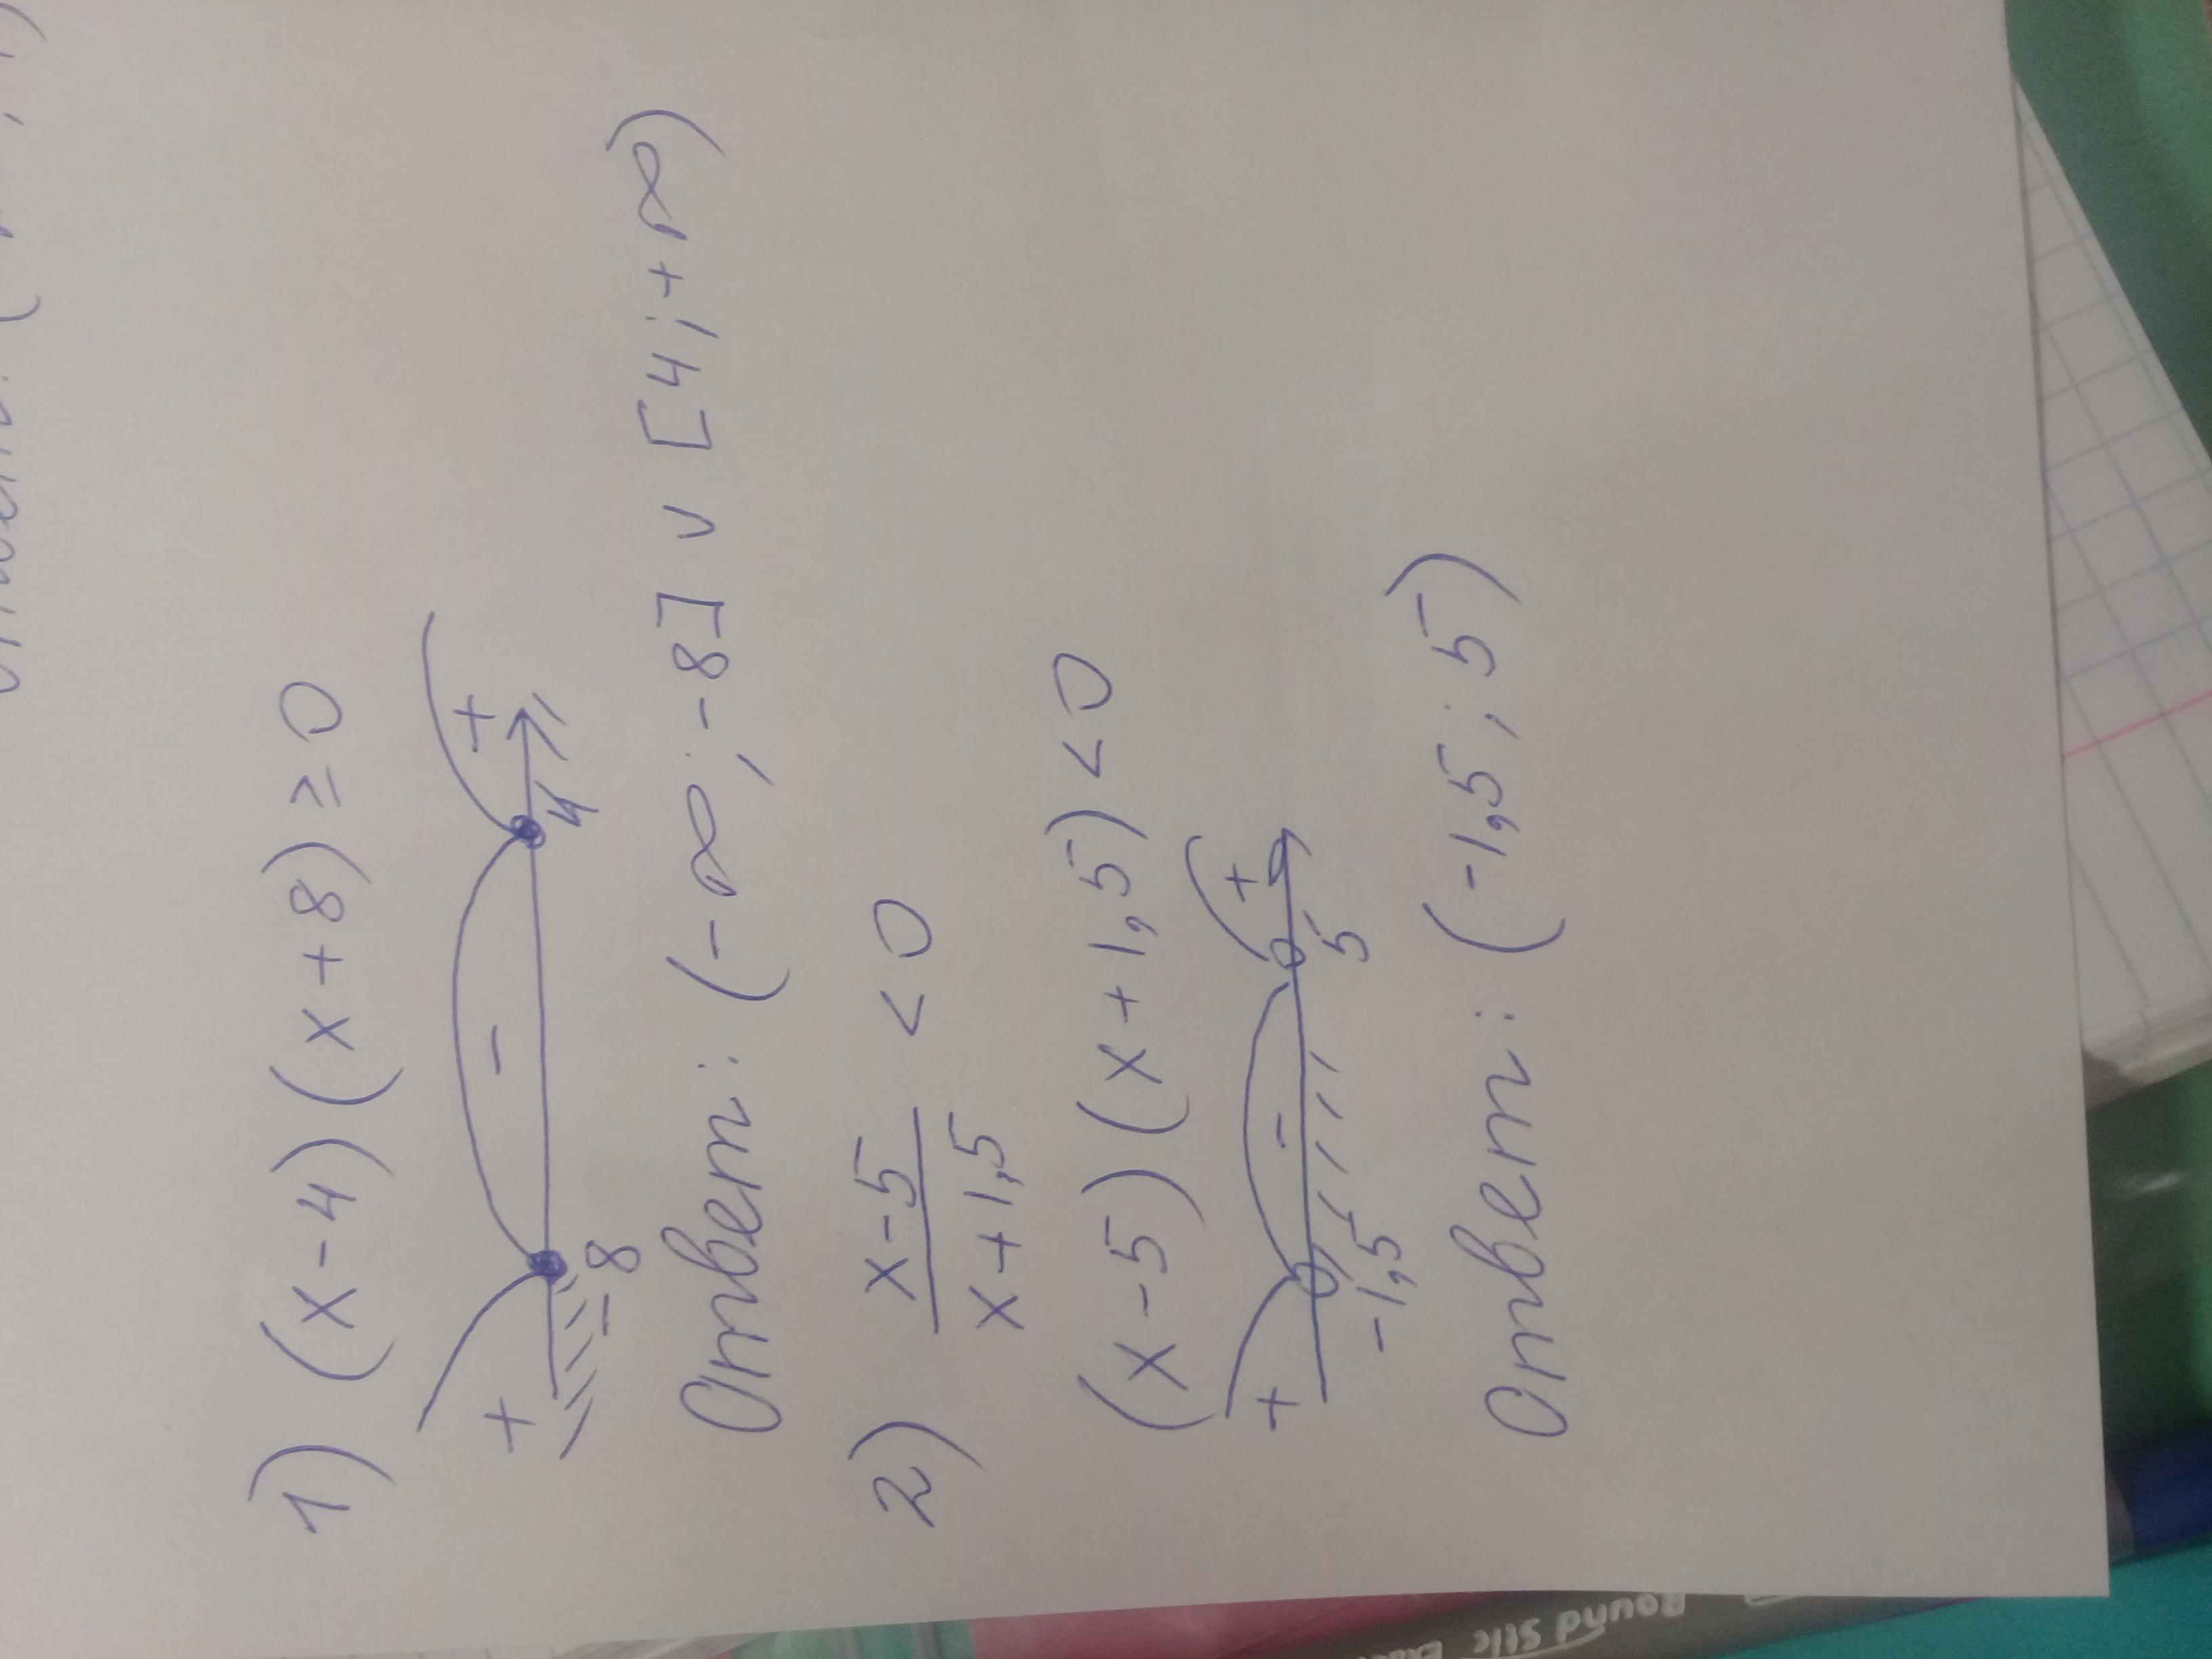 1) (x-4)(x+8) ≥ 0
+ - +
-8 4
Ответ: (-∞; -8] ∪ [4; +∞)
2) x-5 / x+1,5 < 0
(x-5)(x+1,5) < 0
+ - +
-1,5 5
Ответ: (-1,5; 5)
Round Stic